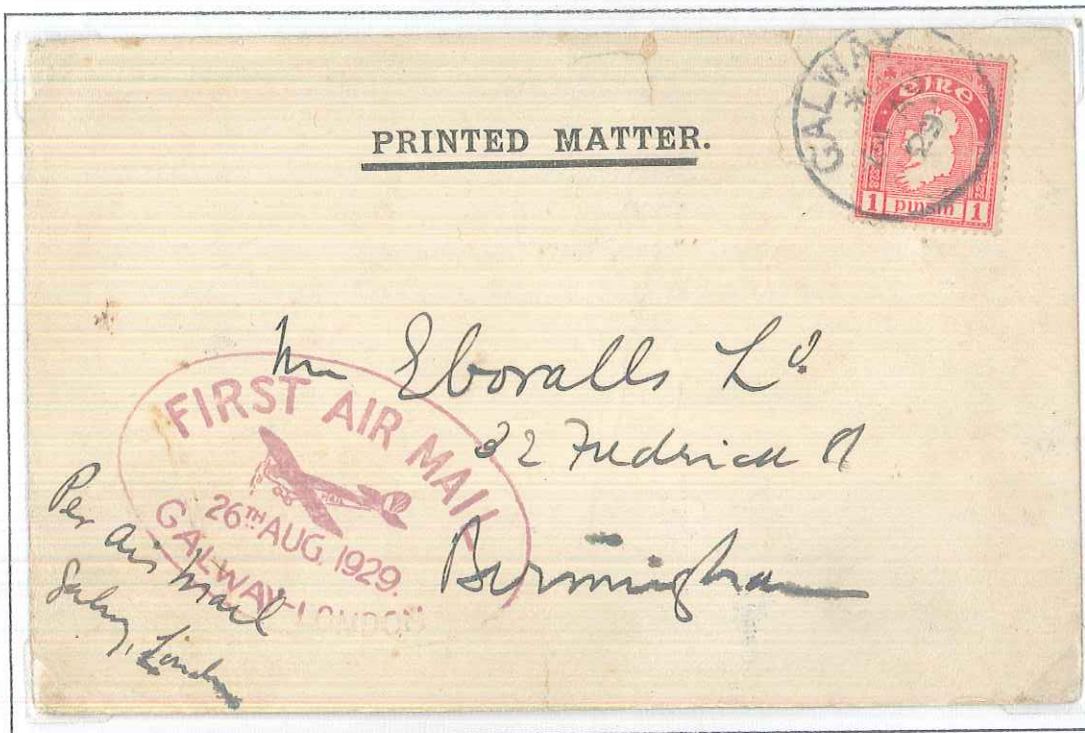 PRINTED MATTER.
GALWAY
29
EIRE
1 pinsin 1
Eboralls Ld.
32 Fredrick St
Birmingham
FIRST AIR MAIL
26TH AUG. 1929.
GALWAY-LONDON
Per Air Mail
Galway, London